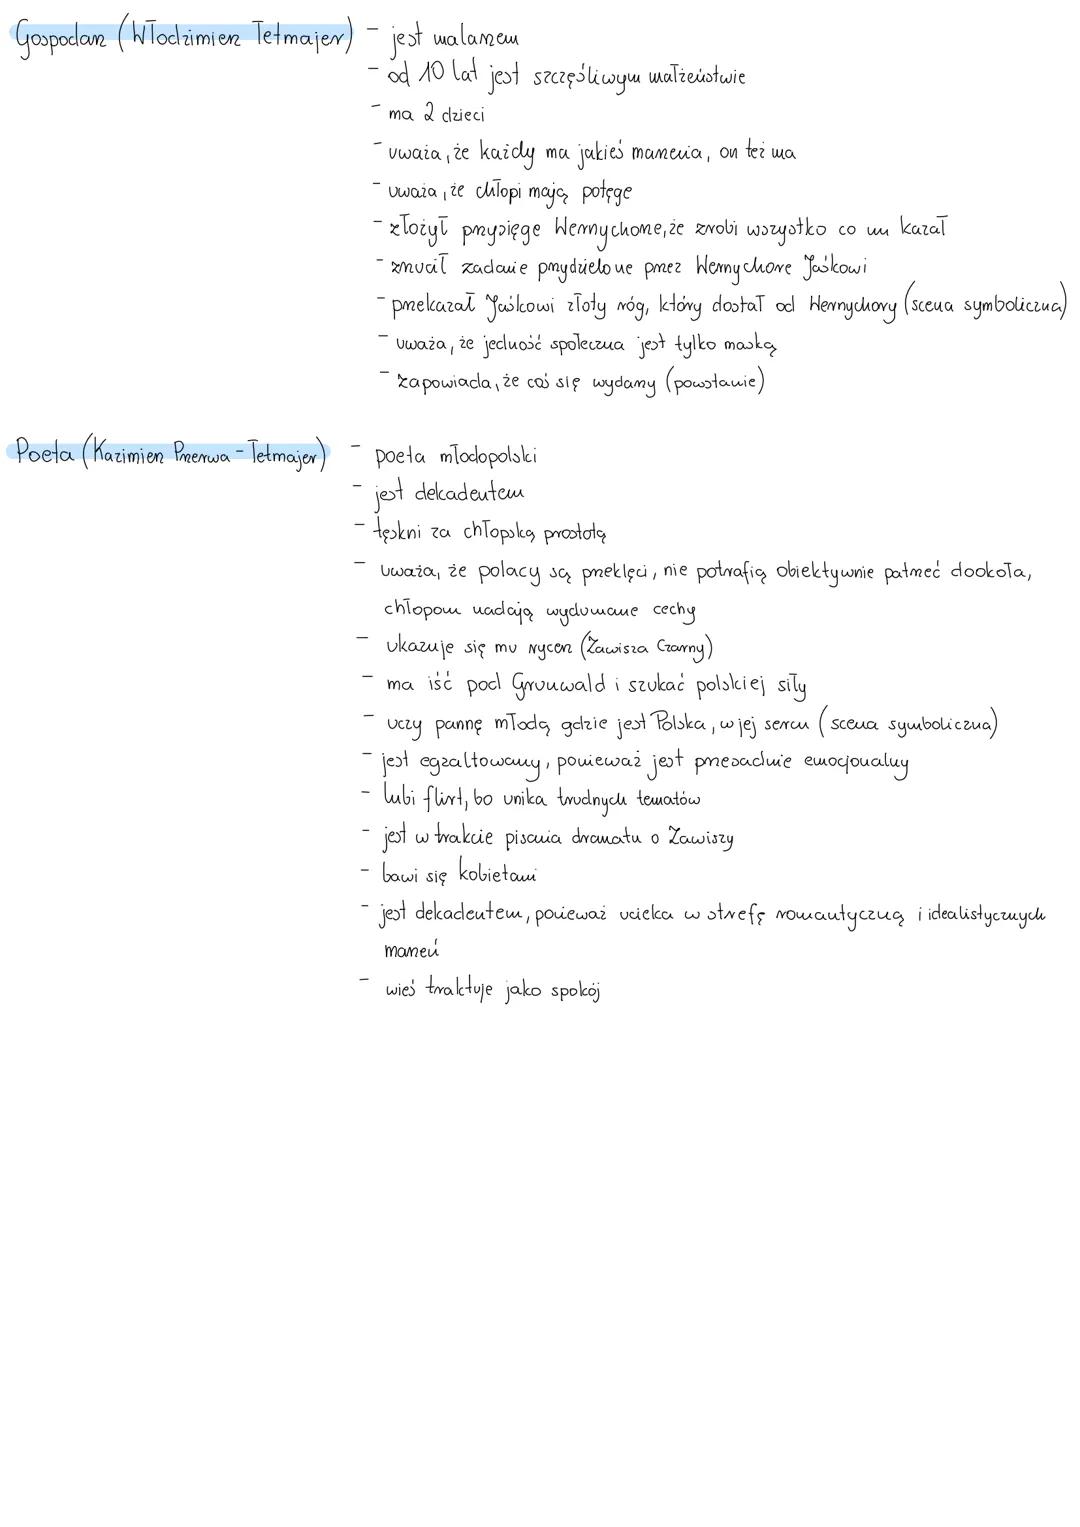 Gospodarz (Włodzimierz Tetmajer) - jest malarzem
- od 10 lat jest szczęśliwym małżeństwie
- ma 2 dzieci
- uważa, że każdy ma jakieś marzenia, on też ma
- uważa, że chłopi mają potęge
- złożył przysięge Wernychorze, że zrobi wszystko co mu kazał
- zrzucił zadanie przydzielone przez Wernychore Jaśkowi
- przekazał Jaśkowi złoty róg, który dostał od Wernychory (scena symboliczna)
- uważa, że jedność społeczna jest tylko maską
- zapowiada, że coś się wydarzy (powstanie)
Poeta (Kazimierz Przerwa - Tetmajer) - poeta młodopolski
- jest dekadentem
- tęskni za chłopską prostotą
- uważa, że polacy są przeklęci, nie potrafią obiektywnie patrzeć dookoła,
chłopom nadają wydumane cechy
- ukazuje się mu rycerz (Zawisza Czarny)
- ma iść pod Grunwald i szukać polskiej siły
- uczy pannę młodą gdzie jest Polska, w jej sercu (scena symboliczna)
- jest egzaltowany, ponieważ jest przesadnie emocjonalny
- lubi flirt, bo unika trudnych tematów
- jest w trakcie pisania dramatu o Zawiszy
- bawi się kobietami
- jest dekadentem, ponieważ ucieka w strefę romantyczną i idealistycznych
marzeń
- wieś traktuje jako spokój